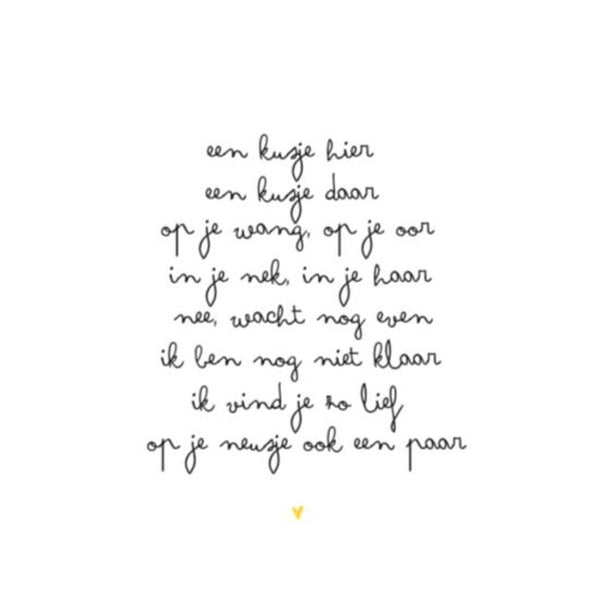 een kusje hier
een kusje daar
op je wang, op je oor
in je nek, in je haar
nee, wacht nog even
ik ben nog niet klaar
ik vind je zo lief
op je neusje ook een paar